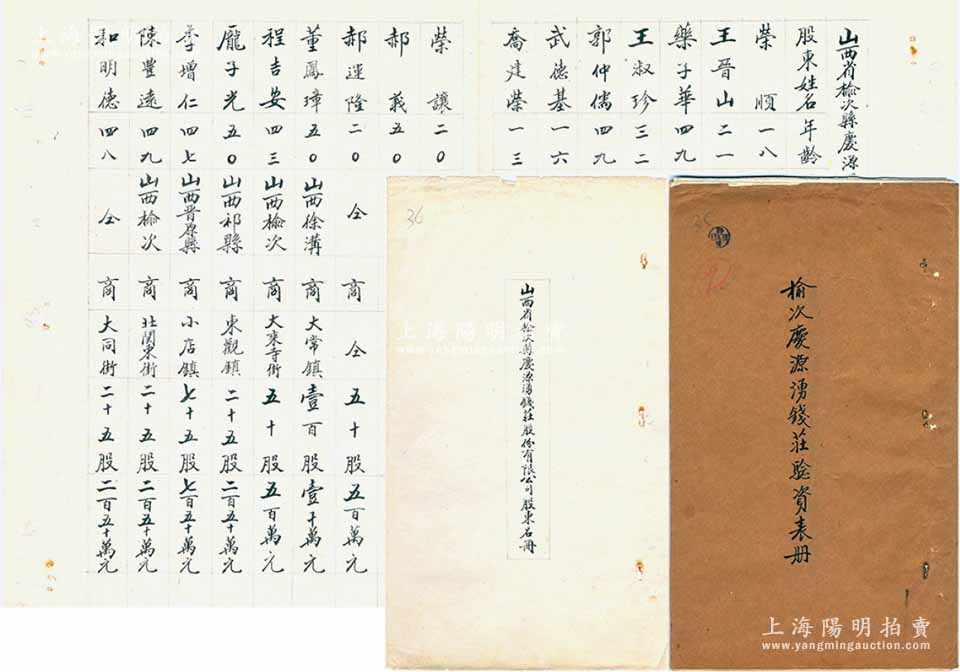 山西省榆次縣慶源
股東姓名 年齡
榮順 一八
王晉山 二一
樂子華 四九
王淑珍 三二
郭仲儒 四九
武德基 一六
喬建榮 一三
榮讓 二0
郝義 五0
郝運隆 二0 仝 商 仝 五十股 五百萬元
董鳳璋 五0 山西徐溝 商 大常鎮 壹百股 壹千萬元
程吉安 四三 山西榆次 商 大來寺街 五十股 五百萬元
龐子光 五0 山西祁縣 商 東觀鎮 二十五股 二百五十萬元
李增仁 四七 山西晋原縣 商 小店鎮 七十五股 七百五十萬元
陳豐遠 四九 山西榆次 商 北関東街 二十五股 二百五十萬元
和明德 四八 仝 商 大同街 二十五股 二百五十萬元
36
山西省榆次縣慶源湧錢莊股份有限公司股東名冊
榆次慶源湧錢莊驗資表册
上海陽明拍賣
www.yangmingauction.com
上海陽明拍賣
www.yangmingauction.com